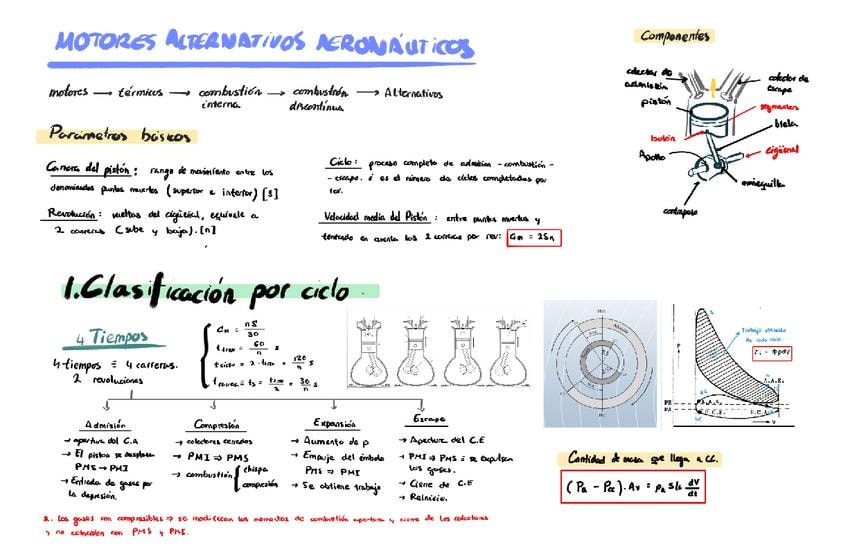 MOTORES ALTERNATIVOS AERONÁUTICOS
motores → térmicos → combustión interna → combustión discontinua → Alternativos
Parámetros básicos
Carrera del pistón: rango de movimiento entre los
denominados puntos muertos (superior e inferior) [s]
Revolución: vueltas del cigüeñal, equivale a
2 carreras (sube y baja). [n]
Ciclo: proceso completo de admisión - combustión -
- escape. i es el número de ciclos completados por
rev.
Velocidad media del Pistón: entre puntos muertos y
teniendo en cuenta las 2 carreras por rev: Cm = 2Sn
Componentes
colector de
admisión
pistón
bulón
Apoyo
contrapeso
colector de
escape
segmentos
biela
cigüeñal
muñequilla
1. Clasificación por ciclo
4 Tiempos
4 tiempos ≡ 4 carreras.
2 revoluciones
Cm = nS/30
t rev = 60/n s
t ciclo = 2 · t rev = 120/n s
= t rev/2 = 30/n s
Admisión
→ apertura del C.A
→ El pistón se desplaza
PMS → PMI
→ Entrada de gases por
la depresión.
Compresión
→ colectores cerrados
→ PMI ⇒ PMS
→ combustión { chispa
compresión
Expansión
→ Aumento de p
→ Empuje del émbolo
PMS ⇒ PMI
→ Se obtiene trabajo
Escape
→ Apertura del C.E
→ PMI ⇒ PMS ≡ se expulsan
los gases.
→ Cierre de C.E
→ Reinicio.
Trabajo obtenido
en cada ciclo.
A.A.E.
V
Cantidad de masa que llega a CC.
dV/dt
2. Los gases son compresibles ⇒ se modifican los momentos de combustión apertura y cierre de los colectores
y no coinciden con PMS y PMI.